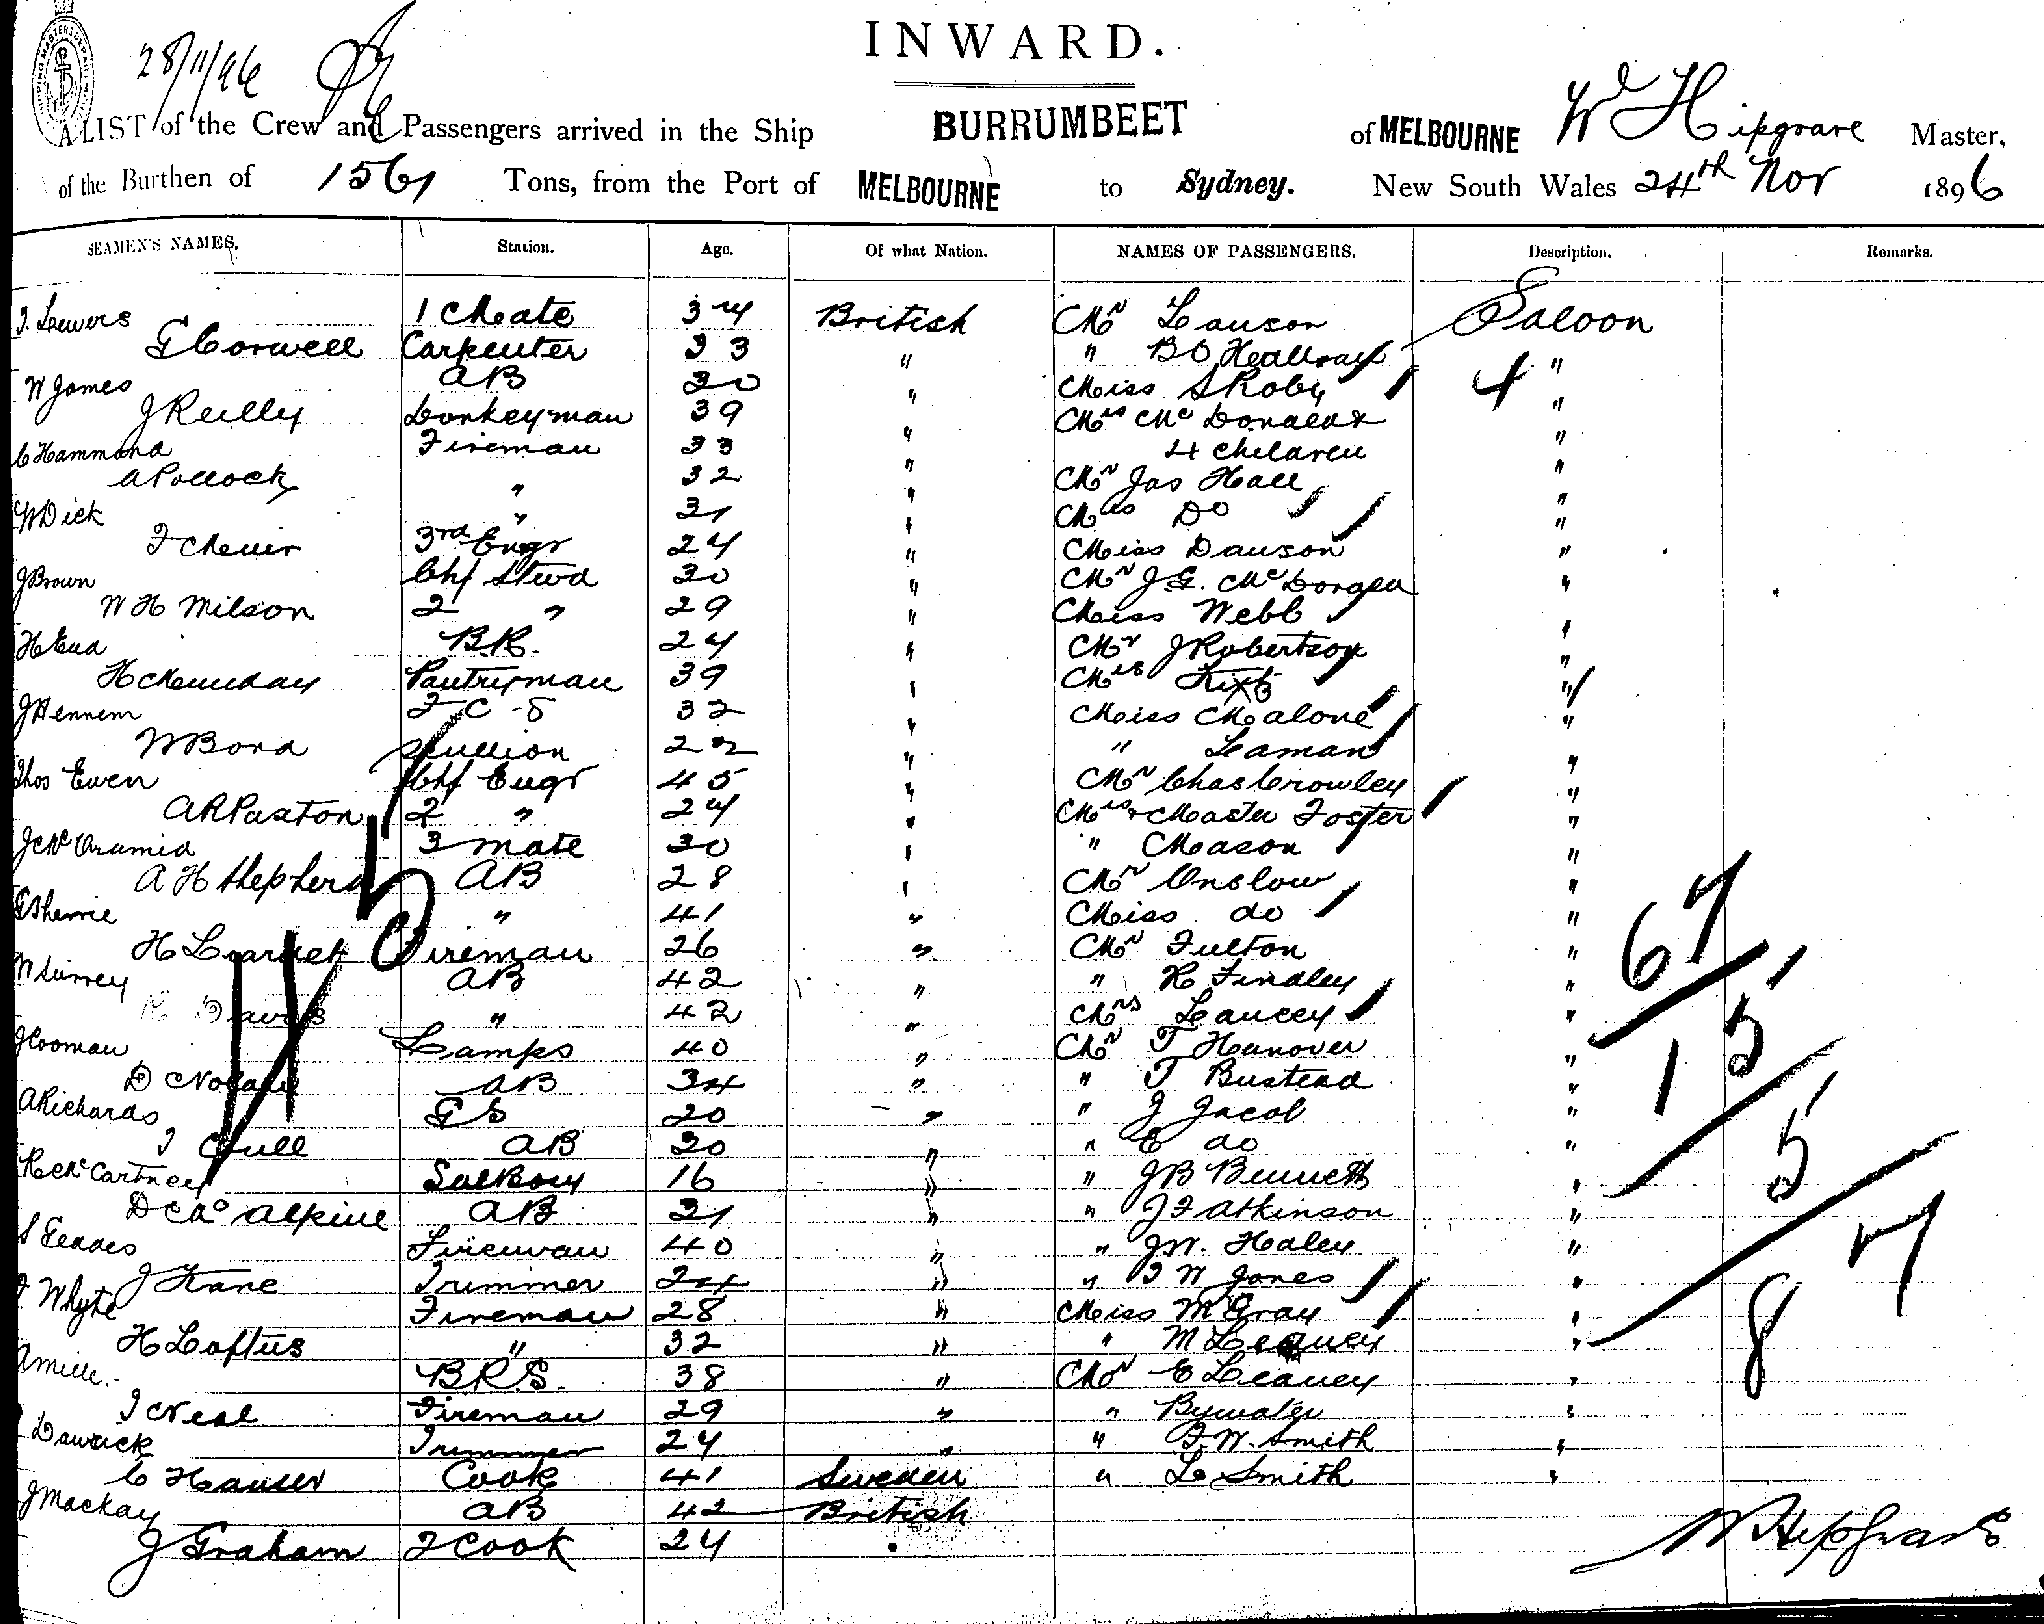 28/11/96
INWARD.
A LIST of the Crew and Passengers arrived in the Ship BURRUMBEET of MELBOURNE Wd Hipgrave Master,
of the Burthen of 1561 Tons, from the Port of MELBOURNE to Sydney. New South Wales 24th Nov 1896
SEAMEN'S NAMES. Station. Age. Of what Nation. NAMES OF PASSENGERS. Description. Remarks.
J. Lewers 1 Mate 34 British Mr Lawson Saloon
G Corwell Carpenter 33 " " B O Healloway "
W James AB 30 " Miss S Roby 4 "
J Reilly Donkeyman 39 " Mrs McDonald & "
C Hammond Fireman 33 " 4 children "
A Pollock " 32 " Mr Jas Hall "
W Dick " 31 " Mrs Do "
3rd Engr 24 " Miss Dawson "
J Brown Chf Stwd 30 " Mr J G. "
W H Milson 2 " 29 " Miss Webb "
H End B.R. 24 " Mr J Robertson "
H Munday Pantryman 39 " Mrs "
J Hennem F C S 32 " Miss Malone "
W Bond Scullion 22 " " Leaman "
Thos Ewen Chf Engr 45 " Mr Chas Crowley "
A R Paxton 2 " 24 " Mrs & Master Foster "
3 mate 30 " " Mason "
A H Shepherd AB 28 " Mr Onslow "
G Sherrie " 41 " Miss do "
H Fireman 26 " Mr Fulton "
W Surrey AB 42 " " R Findley "
R Davis " 42 " Mrs Lancey "
J Cooman Lamps 40 " Mr T Hanover "
D AB 34 " " T Bustead "
A Richards G S 20 " " J Jacob "
J Hull AB 30 " " E do "
R McCartney Sal Boy 16 " " J B Bennett "
D McAlpine AB 31 " " J F Atkinson "
S Geddes Fireman 40 " " J W. Haley "
J Kane Trimmer 24 " " T W Jones "
J Whyte Fireman 28 " Miss M Gray "
H Loftus " 32 " " M Leaney "
A Mill B R S. 38 " Mr E Leaney "
J Neal Fireman 29 " " Bywater "
Dawick Trimmer 24 " " F. W. Smith "
C Hansen Cook 41 Sweden " L Smith "
J Mackay AB 42 British
J Graham 2 Cook 24 "
67
15
5
87
45
W Hipgrave